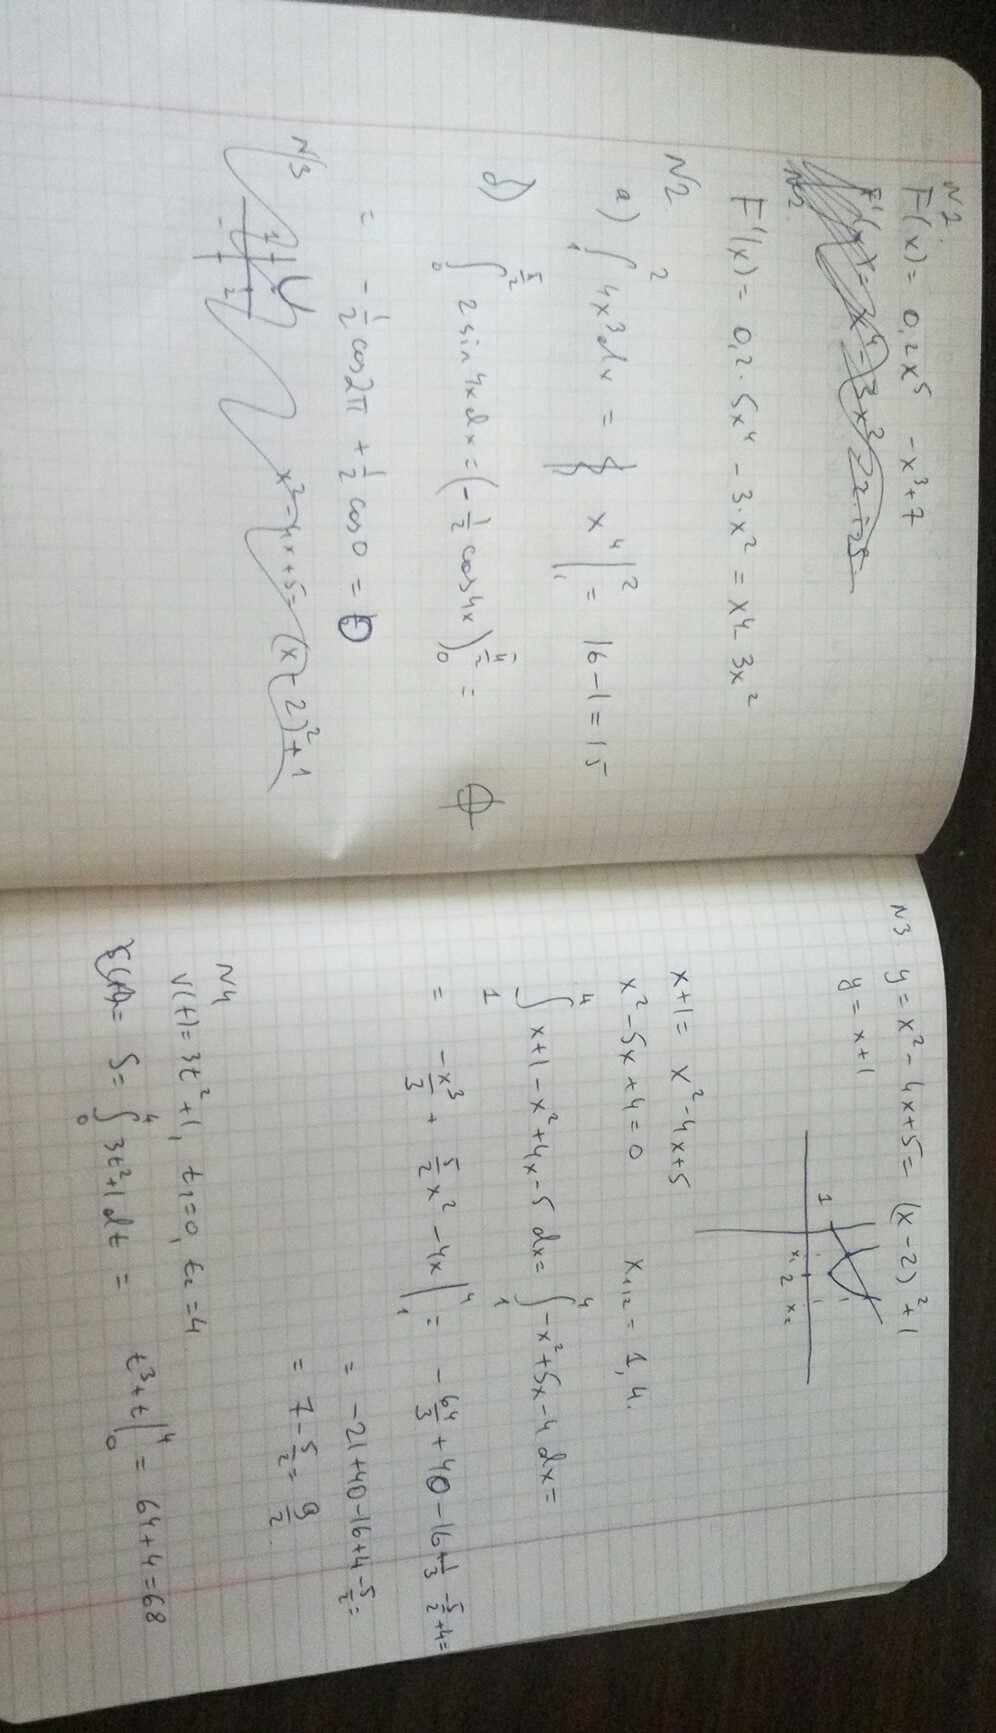 N1.
F(x) = 0,2x⁵ - x³ + 7
N2.
F'(x) = 0,2·5x⁴ - 3·x² = x⁴ - 3x²
N2.
a) ∫₁² 4x³dx = x⁴|₁² = 16 - 1 = 15
∫₀ 2 sin 4x dx = (-1/2 cos 4x)₀ =
= -1/2 cos 2π + 1/2 cos 0 = 0
N3
x² - 4x + 5 = (x - 2)² + 1
N3 y = x² - 4x + 5 = (x - 2)² + 1
y = x + 1
1
x₁ 2 x₂
x + 1 = x² - 4x + 5
x² - 5x + 4 = 0 x₁,₂ = 1, 4.
∫₁⁴ x + 1 - x² + 4x - 5 dx = ∫₁⁴ -x² + 5x - 4 dx =
= -x³/3 + 5/2 x² - 4x |₁⁴ = -64/3 + 40 - 16 + 1/3 - 5/2 + 4 =
= -21 + 40 - 16 + 4 - 5/2 =
= 7 - 5/2 = 9/2
N4
V(t) = 3t² + 1, t₁ = 0, t₂ = 4
S = ∫₀⁴ 3t² + 1 dt = t³ + t|₀⁴ = 64 + 4 = 68